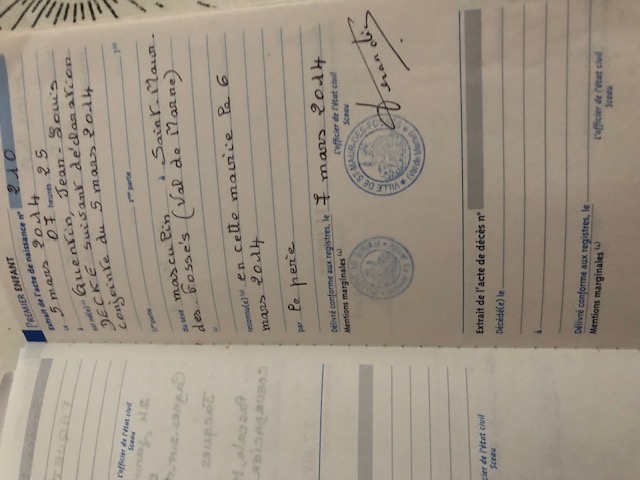 PREMIER ENFANT
Extrait de l'acte de naissance n° 210
le 5 mars 2014
à 07 heures 25
est né(e) Quentin, Jean-Louis
DECKE suivant déclaration
conjointe du 5 mars 2014
1re partie
2e partie
du sexe masculin à Saint-Maur-
des-Fossés (Val de Marne)
reconnu(e) le en cette mairie le 6
mars 2014
par le père
Délivré conforme aux registres, le 7 mars 2014
Mentions marginales L'officier de l'état civil
Sceau
VILLE DE ST-MAUR-DES-FOSSÉS
Extrait de l'acte de décès n°
Décédé(e) le
à
Délivré conforme aux registres, le
Mentions marginales L'officier de l'état civil
Sceau
L'officier de l'état civil
Sceau
cier de l'état civil
Sceau